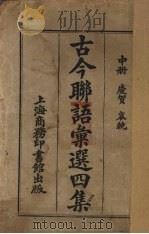 中冊 慶賀 哀輓
古今聯語彙選四集
上海商務印書館出版